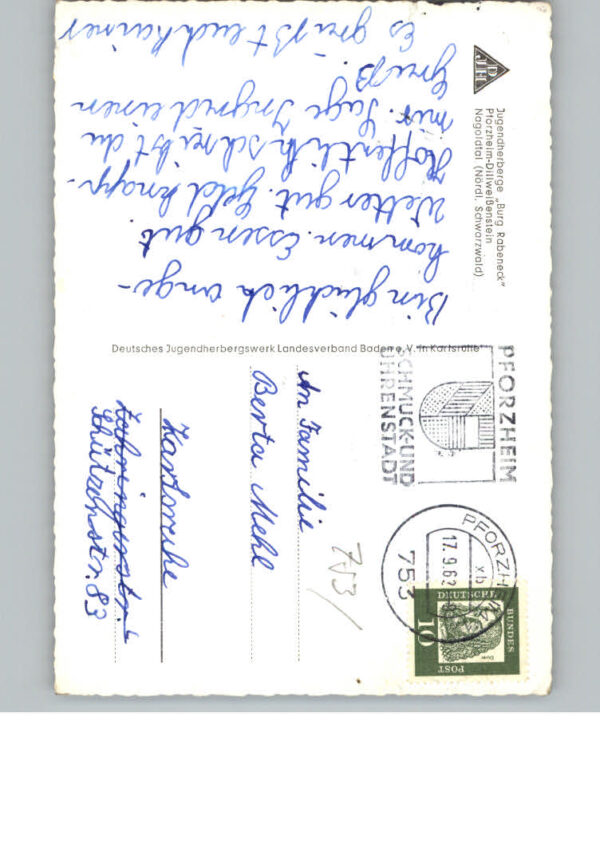 DJH
Jugendherberge „Burg Rabeneck"
Pforzheim-Dillweißenstein
Nagoldtal (Nördl. Schwarzwald)
Bin glücklich ange-
kommen. Essen gut
Wetter gut. Geld knapp.
Hoffentlich schreibst du
mir. Sage Ingrid einen
Gruß.
Es grüßt euch
Deutsches Jugendherbergswerk Landesverband Baden e. V. in Karlsruhe
PFORZHEIM
SCHMUCK-UND
UHRENSTADT
PFORZHEIM
17.9.62
753
DEUTSCHE
BUNDES
POST
10
Dürer
753/
An Familie
Berta Mehl
Karlsruhe
Zähringerstr.
Schützenstr. 83